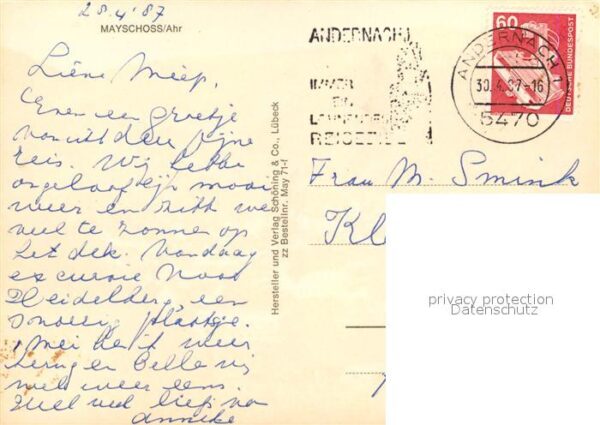 28.4.'87
MAYSCHOSS/Ahr
Lieve Miep,
Even een groetje
vanuit den Rijn
reis. Wij hebben
ongelooflijk mooi
weer en zitten we
veel te zonnen op
het dek. Vandaag
excursie naar
Heidelberg, een
snoezig plaatsje.
1 Mei ben ik weer
terug en Bellen wij
wel weer eens.
Heel veel liefs van
Anneke
Hersteller und Verlag Schöning & Co., Lübeck
zz Bestellnr. May 71-f
ANDERNACH
IMMER
EIN
LOHNENDES
REISEZIEL
ANDERNACH 1
30.4.87-16
5470
60
DEUTSCHE BUNDESPOST
Frau M. Smink
Kl
privacy protection
Datenschutz